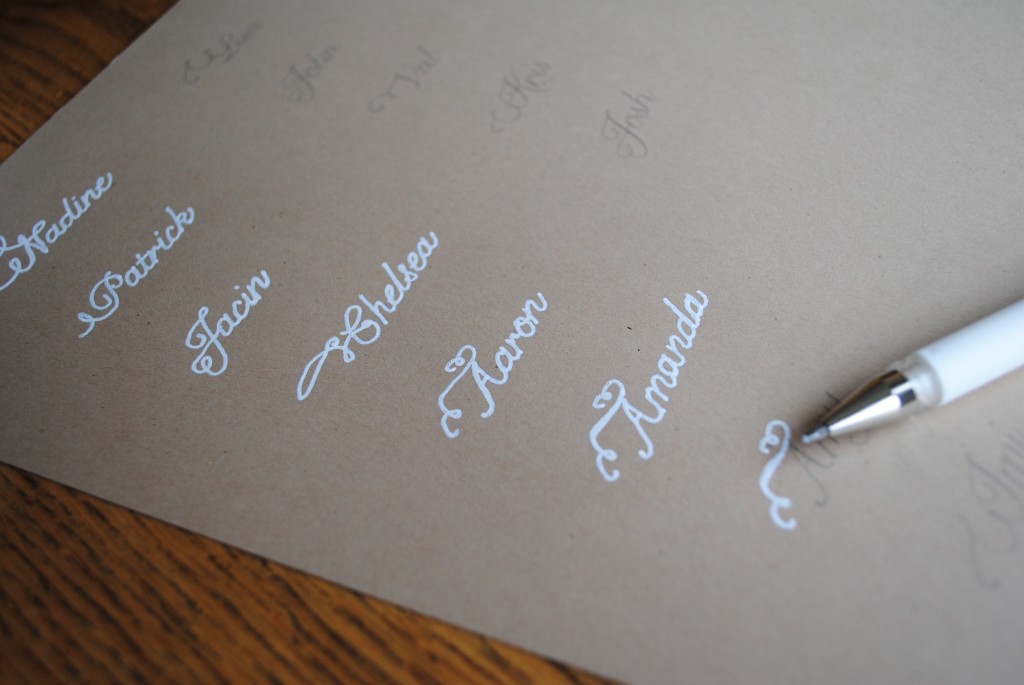 Liam
John
Val
Kris
Josh
Nadine
Patrick
Jacin
Chelsea
Aaron
Amanda